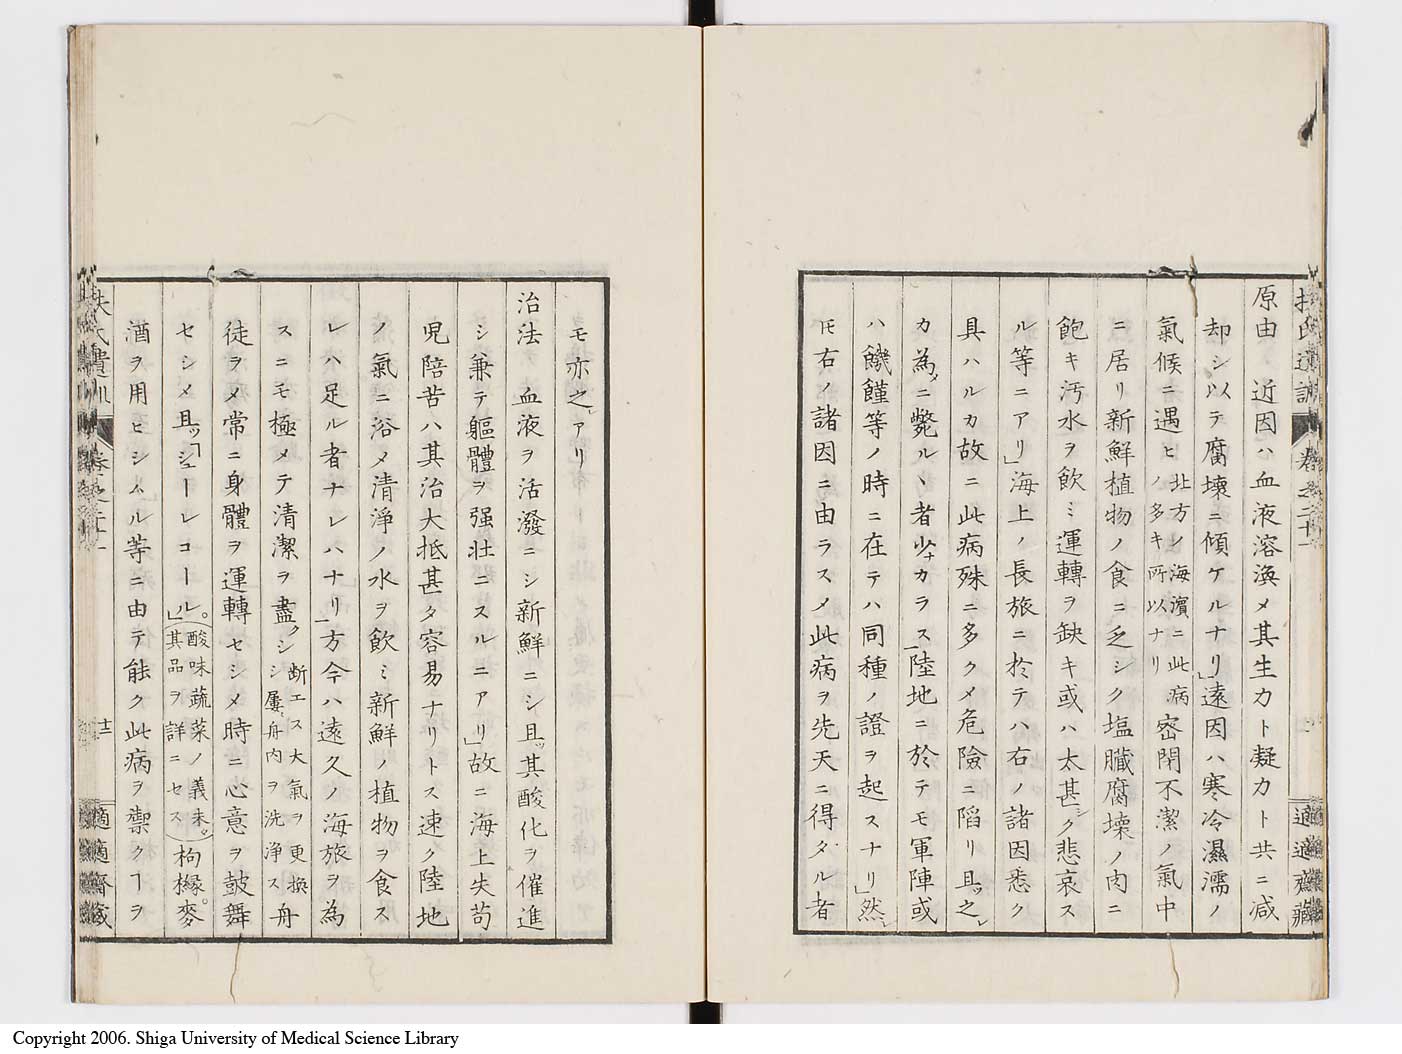 扶氏遺訓 卷之二十一 適適齋藏
原由 近因ハ血液溶渙メ其生力ト凝力ト共ニ減
却シ以テ腐壊ニ傾ケルナリ」遠因ハ寒冷濕濡ノ
氣候ニ遇ヒ 北方ノ海濱ニ此病ノ多キ所以ナリ 密閉不潔ノ氣中
ニ居リ新鮮植物ノ食ニ乏シク塩臓腐壊ノ肉ニ
飽キ汚水ヲ飲ミ運轉ヲ缺キ或ハ太甚シク悲哀ス
ル等ニアリ」海上ノ長旅ニ於テハ右ノ諸因悉ク
具ハルカ故ニ此病殊ニ多クメ危險ニ陷リ且ッ之レ
カ為メニ斃ルヽ者少ナカラス」陸地ニ於テモ軍陣或
ハ饑饉等ノ時ニ在テハ同種ノ證ヲ起スナリ」然レ
𪜈右ノ諸因ニ由ラスメ此病ヲ先天ニ得タル者
モ亦之アリ
治法 血液ヲ活潑ニシ新鮮ニシ且ッ其酸化ヲ催進
シ兼テ軀體ヲ强壮ニスルニアリ」故ニ海上失苟
児陪苦ハ其治大抵甚タ容易ナリトス速ク陸地
ノ氣ニ浴メ清淨ノ水ヲ飲ミ新鮮ノ植物ヲ食ス
レハ足ル者ナレハナリ」方今ハ遠久ノ海旅ヲ為
スニモ極メテ清潔ヲ盡クシ 断エス大氣ヲ更換シ屢〻舟内ヲ洗浄ス 舟
徒ヲメ常ニ身體ヲ運轉セシメ時ニ心意ヲ鼓舞
セシメ且ッ「シューレコール。」(酸味蔬菜ノ義未ダ其品ヲ詳ニセス)枸櫞。麥
酒ヲ用ヒシムル等ニ由テ能ク此病ヲ禦クヿヲ
扶氏遺訓 卷之二十一 十二 適適齋藏
Copyright 2006. Shiga University of Medical Science Library